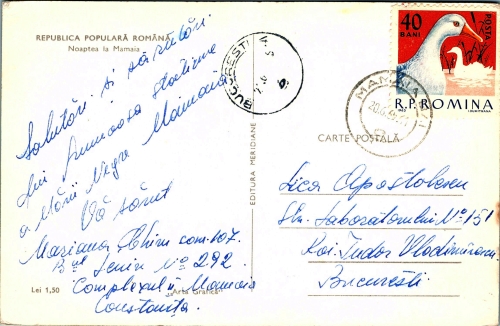 REPUBLICA POPULARĂ ROMÂNĂ
Noaptea la Mamaia
Salutări și sărutări
din frumoasa stațiune
a Mării Negre Mamaia
Vă sărut
Mariana Chiru com. 107.
Bul Lenin No 292
Complexul „Mamaia
Constanța
Lei 1,50
"Arta Grafică"
EDITURA MERIDIANE
BUCUREȘTI
MAMAIA
40
BANI
POSTA
R.P. ROMINA
CARTE POȘTALĂ
Lica Apostolescu
Str. Laboratorului No 151
Rai. Tudor Vladimirescu
București